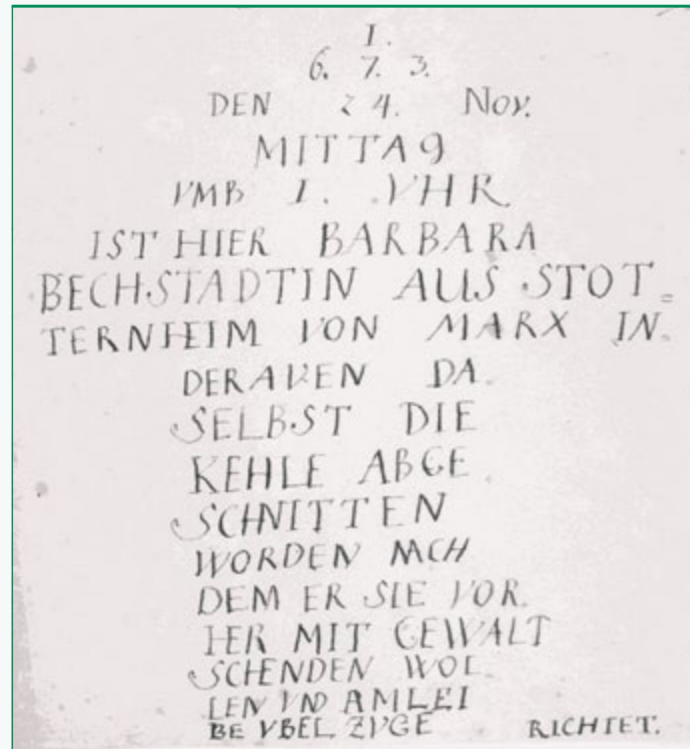 I.
6. 7. 3.
DEN 24. Nov.
MITTAG
VMB I. VHR
IST HIER BARBARA
BECHSTADTIN AUS STOT=
TERNHEIM VON MARX IN.
DERAVEN DA.
SELBST DIE
KEHLE ABGE.
SCHNITTEN
WORDEN NACH
DEM ER SIE VOR.
HER MIT GEWALT
SCHENDEN WOL.
LEN VND AMLEI
BE VBEL ZVGE RICHTET.